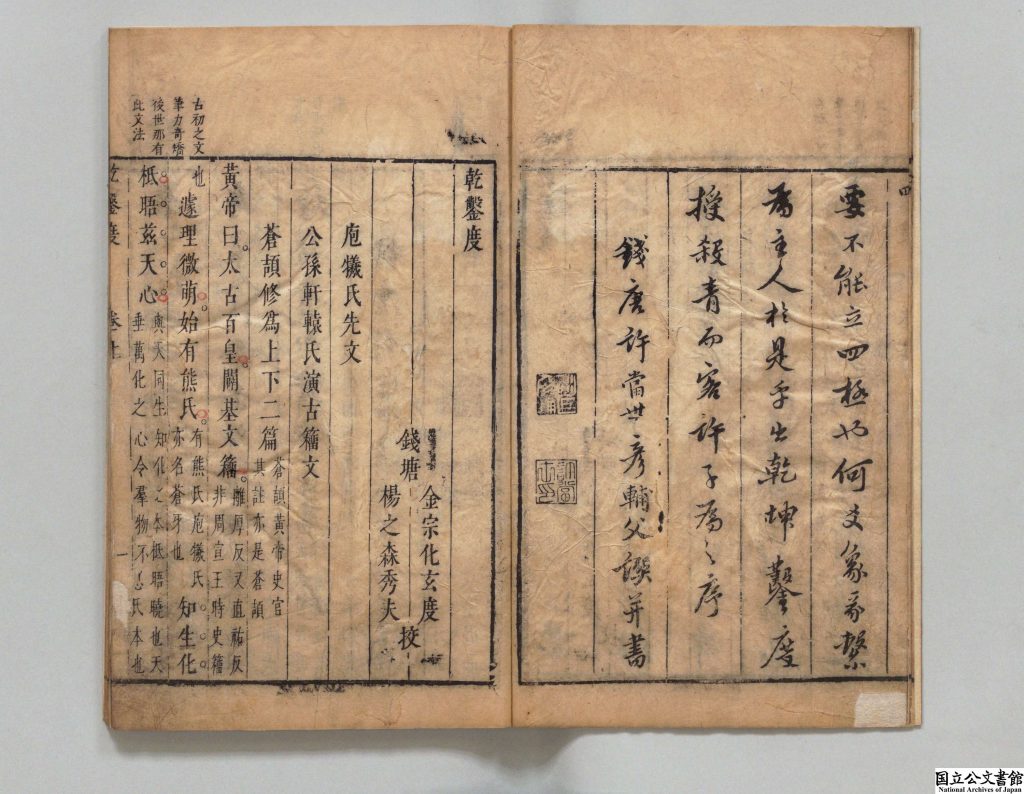 四
要不能立四極也何爻象家繫
為主人於是乎出乾坤鑿度
授殺青而客許子為之序
錢唐許當世彥輔父譔并書
乾鑿度
錢塘
金宗化玄度
楊之森秀夫
校
庖犧氏先文
公孫軒轅氏演古籀文
蒼頡修為上下二篇
蒼頡黃帝史官
其註亦是蒼頡
黃帝曰太古百皇闢基文籀
離厚反又直祐反
非周宣王時史籀
也
遽理微萌始有熊氏
有熊氏庖犧氏
亦名蒼牙也
知生化
柢晤茲天心
與天同生知化之本柢晤曉也天
垂萬化之心令羣物不忘氏本也
古初之文
筆力奇矯
後世那有
此文法
乾鑿度
卷上
一
国立公文書館
National Archives of Japan